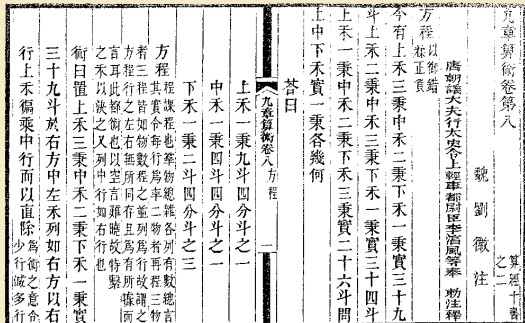 九章算術卷第八
算經十書
之二
魏 劉徽 注
唐朝議大夫行太史令上輕車都尉臣李淳風等奉 勅注釋
方程以御錯
糅正負
今有上禾三秉中禾二秉下禾一秉實三十九
斗上禾二秉中禾三秉下禾一秉實三十四斗
上禾一秉中禾二秉下禾三秉實二十六斗問
上中下禾實一秉各幾何
荅曰
九章算術卷八 方程 一
上禾一秉九斗四分斗之一
中禾一秉四斗四分斗之一
下禾一秉二斗四分斗之三
方程
程課程也羣物總雜各列有數總言
其實令每行為率二物者再程三物
者三程皆如物數程之並列為行故謂之
方程行之左右無所同存且為有所據而
言耳此都術也以空言難曉故特繫
之禾以決之又列中行如右行也
術曰置上禾三秉中禾二秉下禾一秉實
三十九斗於右方中左禾列如右方以右
行上禾徧乘中行而以直除為術之意令
少行減多行